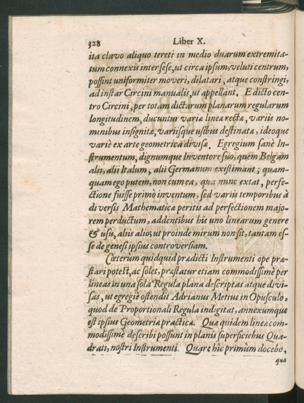 328 Liber X.
ita clavo aliquo tereti in medio duarum extremita-
tum connexis inter sese, ut circa ipsum, veluti centrum,
possint uniformiter moveri, dilatari, atque constringi,
ad instar Circini manualis, ut appellant. E dicto cen-
tro Circini, per totam dictarum planarum regularum
longitudinem, ducuntur variæ lineæ rectæ, variis no-
minibus insignitæ, variisque usibus destinatæ, ideoque
variè ex arte geometrica divisæ. Egregium sanè In-
strumentum, dignumque Inventore suo, quem Belgam
alii, alii Italum, alii Germanum existimant; quam-
quam ego putem, non cum ea, qua nunc extat, perfe-
ctione fuisse primò inventum, sed variis temporibus à
diversis Mathematicæ peritis ad perfectionem majo-
rem perductum, addentibus hic uno linearum genere
& usu, aliis alios; ut proinde mirum non sit, tantam es-
se de genesi ipsius controversiam.
Cæterum quidquid prædicti Instrumenti ope præ-
stari potest, ac solet, præstatur etiam commodissimè per
lineas in una sola Regula plana descriptas atque divi-
sas, ut egregiè ostendit Adrianus Metius in Opusculo,
quod de Proportionali Regula indigitat, annexumque
est ipsius Geometriæ practicæ. Quæ quidem lineæ com-
modissimè describi possunt in planis superficiebus Qua-
drati, nostri Instrumenti. Quare hîc primùm docebo,
quæ